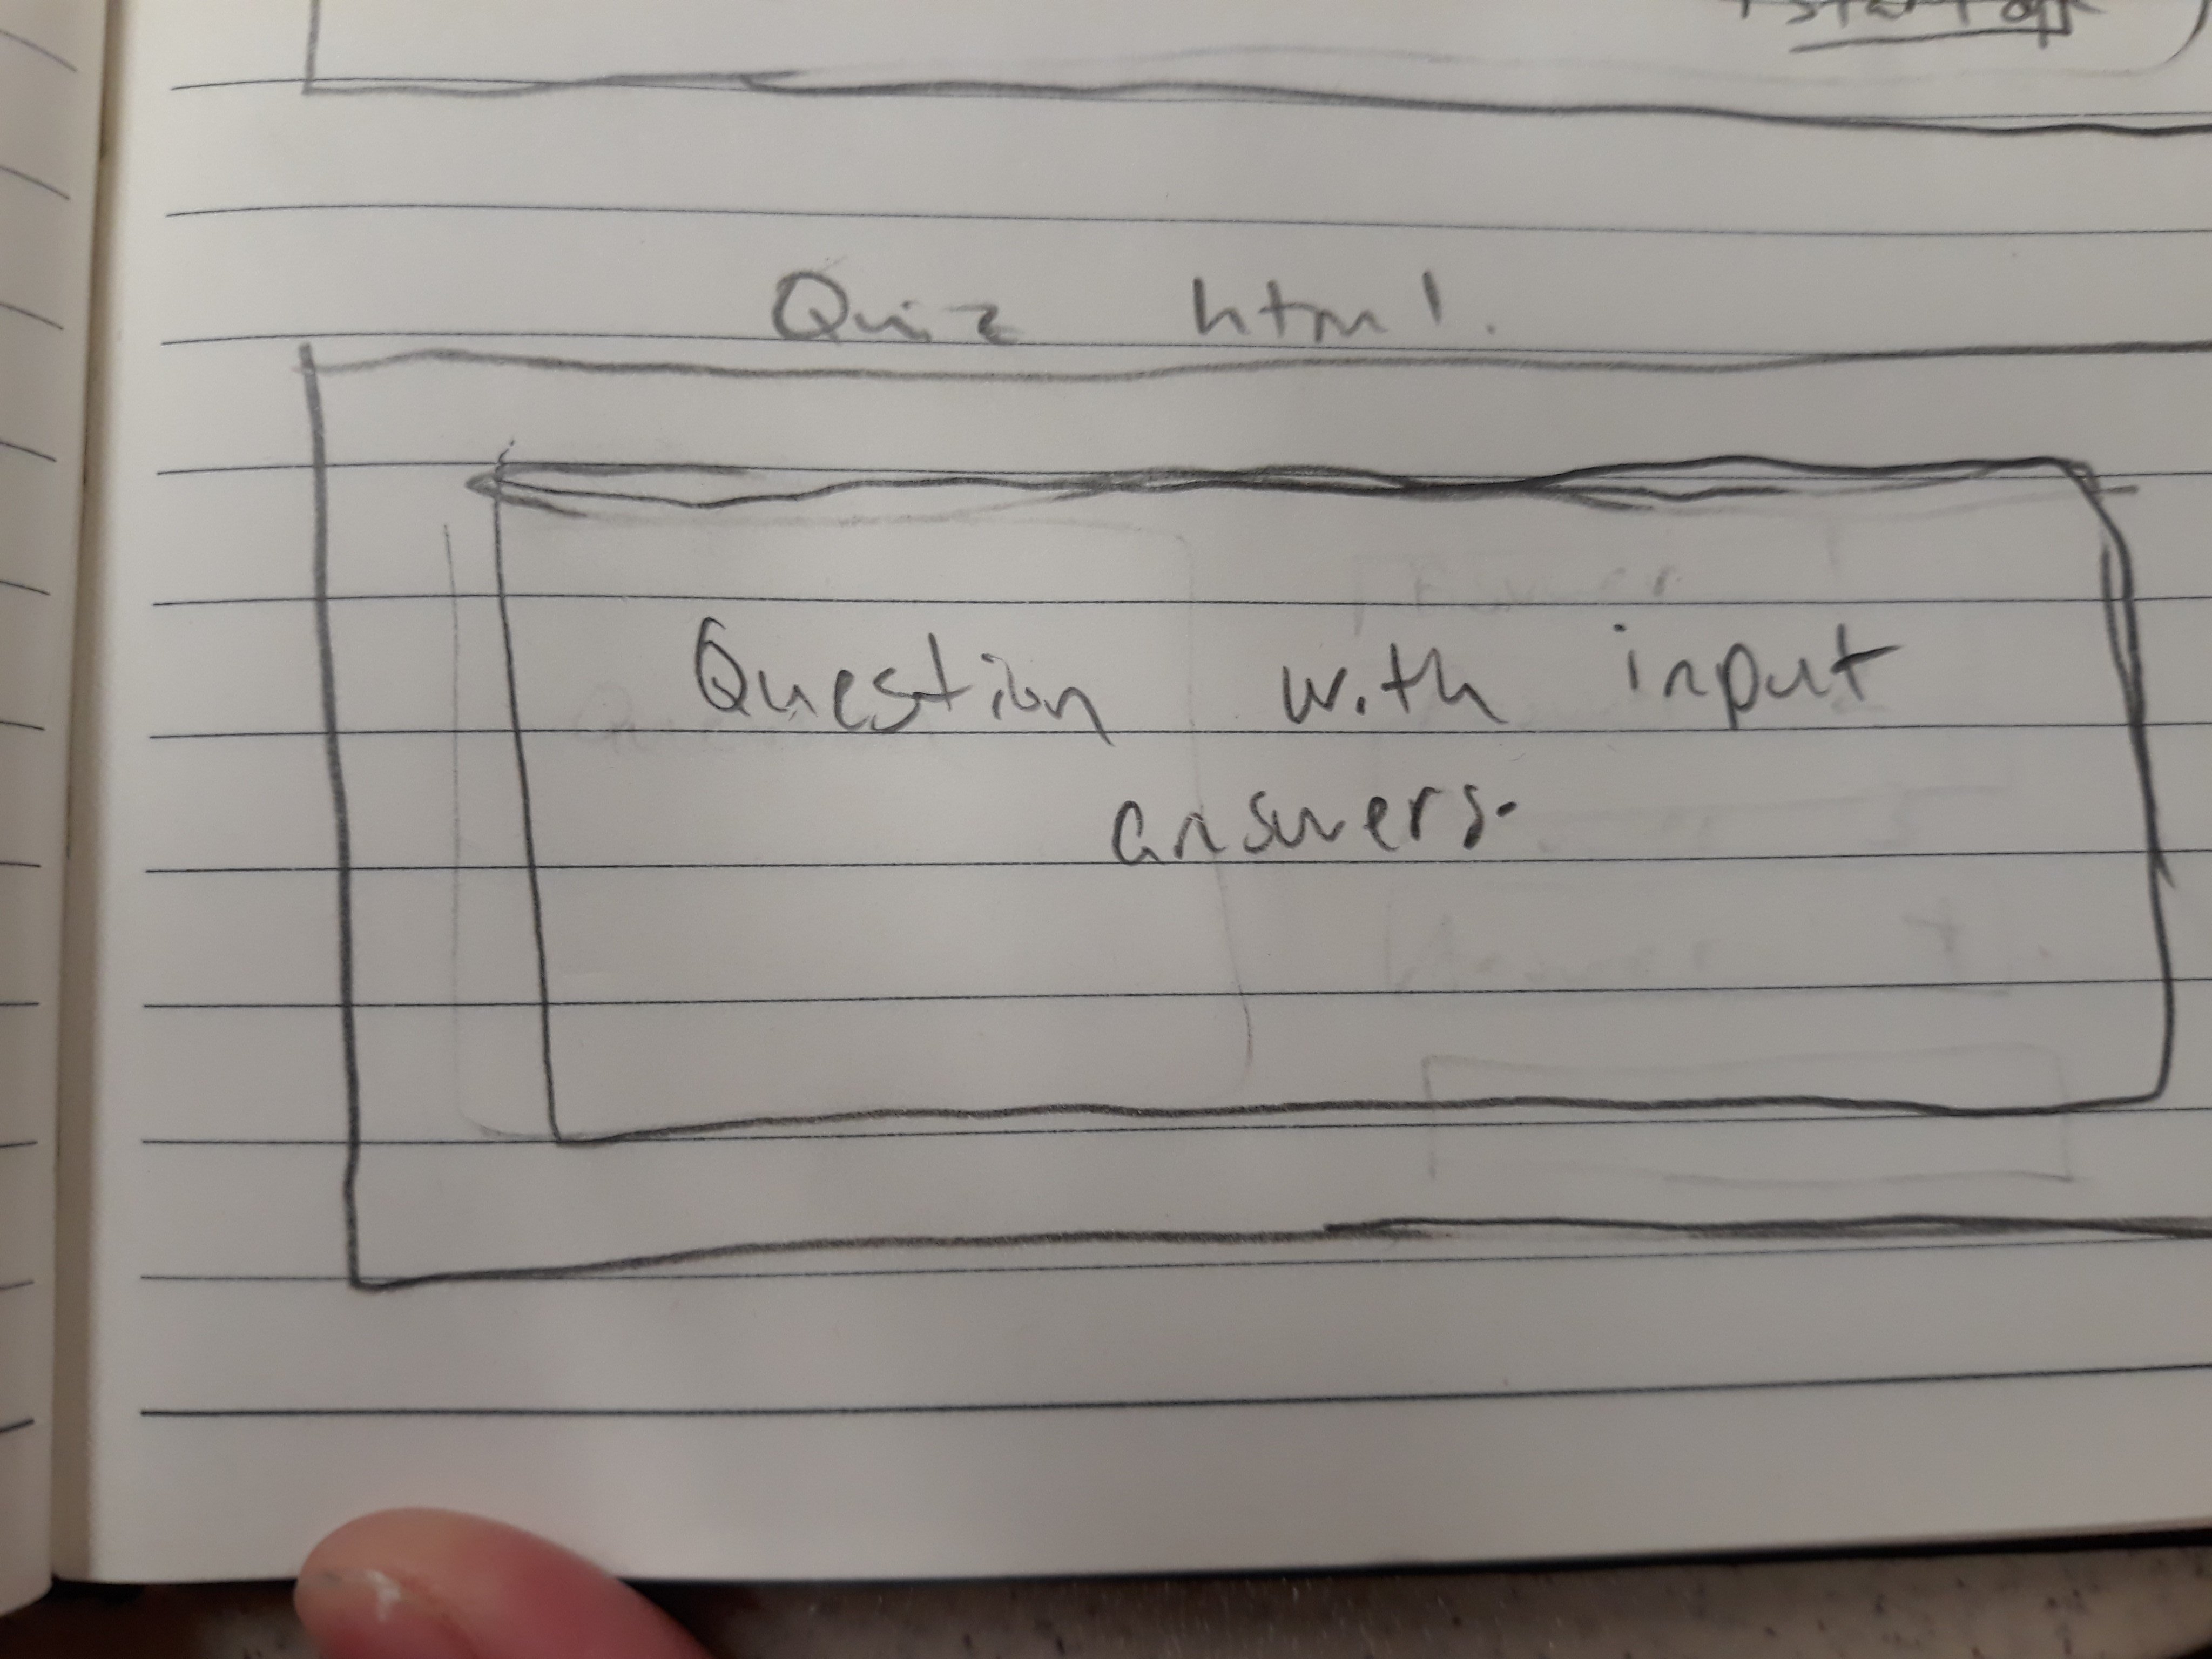 Quiz html.
Question with input
answers.